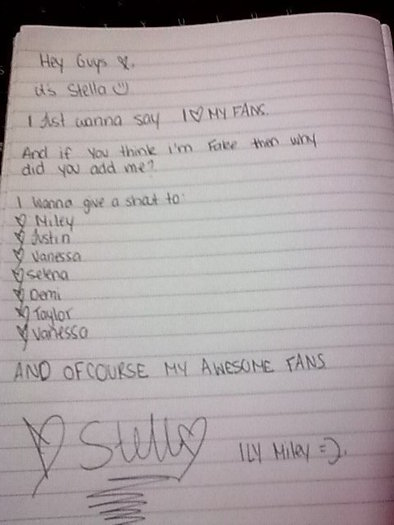 Hey Guys ♡.
it's Stella :)
I Just wanna say I ♡ MY FANS.
And if you think I'm Fake then why
did you add me?
I wanna give a shat to:
♡ Miley
♡ Justin
♡ Vanessa
♡ Selena
♡ Demi
♡ Taylor
♡ Vanessa
AND OFCOURSE MY AWESOME FANS
♡ Stella♡
ILY Miley =).